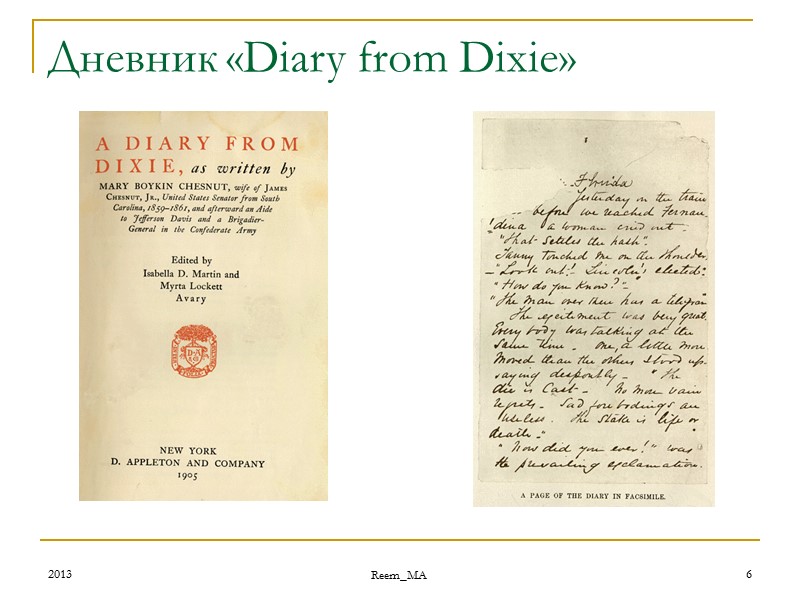 Дневник «Diary from Dixie»
A DIARY FROM
DIXIE, as written by
MARY BOYKIN CHESNUT, wife of JAMES
CHESNUT, JR., United States Senator from South
Carolina, 1859–1861, and afterward an Aide
to Jefferson Davis and a Brigadier-
General in the Confederate Army
Edited by
Isabella D. Martin and
Myrta Lockett
Avary
NEW YORK
D. APPLETON AND COMPANY
1905
1
Florida
Yesterday on the train
-- before we reached Fernan
dina a woman cried out -
"That settles the hash".
Tanny touched me on the shoulder.
- "Look out! Lincoln's elected."
"How do you know?" -
"The man over there has a telegram"
The excitement was very great.
Every body was talking at the
same time. One, a little more
moved than the others stood up
saying despondently - "The
die is cast - No more vain
regrets - Sad forebodings are
useless. The stake is life or
death -"
"Now did you ever!" was
the prevailing exclamation.
A PAGE OF THE DIARY IN FACSIMILE.
2013
Reem_MA
6